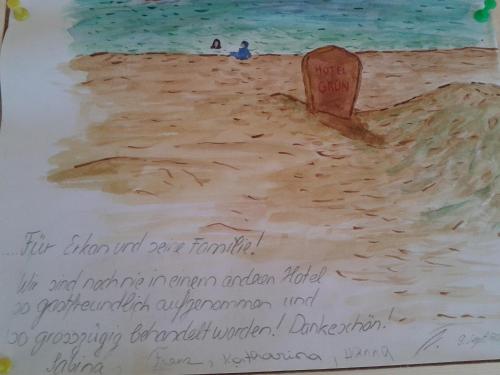 HOTEL
GRÜN
Für Erkan und seine Familie!
Wir sind noch nie in einem anderen Hotel
so gastfreundlich aufgenommen und
so grosszügig behandelt worden! Dankeschön!
Sabina, Franz, Katharina,